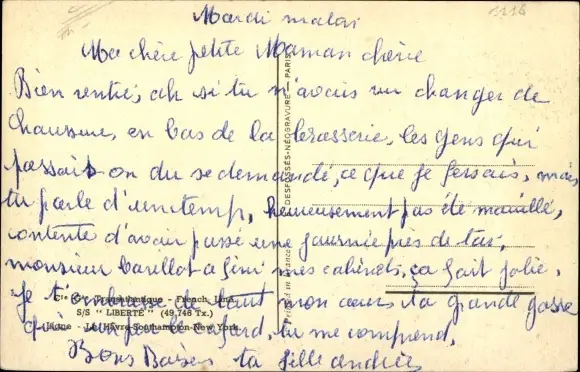 Mardi matin
1118
Ma chère petite Maman chérie
Bien rentré, ah si tu m'avais vu changer de
chaussure, en bas de la brasserie, les gens qui
passait on du se demandé, ce que je fessais, mais
tu parle d'un temp, heureusement pas été mouillé,
contente d'avoir passé une journée près de toi,
monsieur barillot a fini mes cabinets, ça fait jolie,
Je t'embrasse de tout mon cœur ta grande gosse
Cie Gle Transatlantique - French Line
S/S " LIBERTÉ " (49,746 Tx.)
qui a un peu le cafard, tu me comprend,
Ligne - Le Havre-Southampton-New York
Bons Baisers ta fille andrée
DESFOSSÉS-NÉOGRAVURE - PARIS
Printed in France